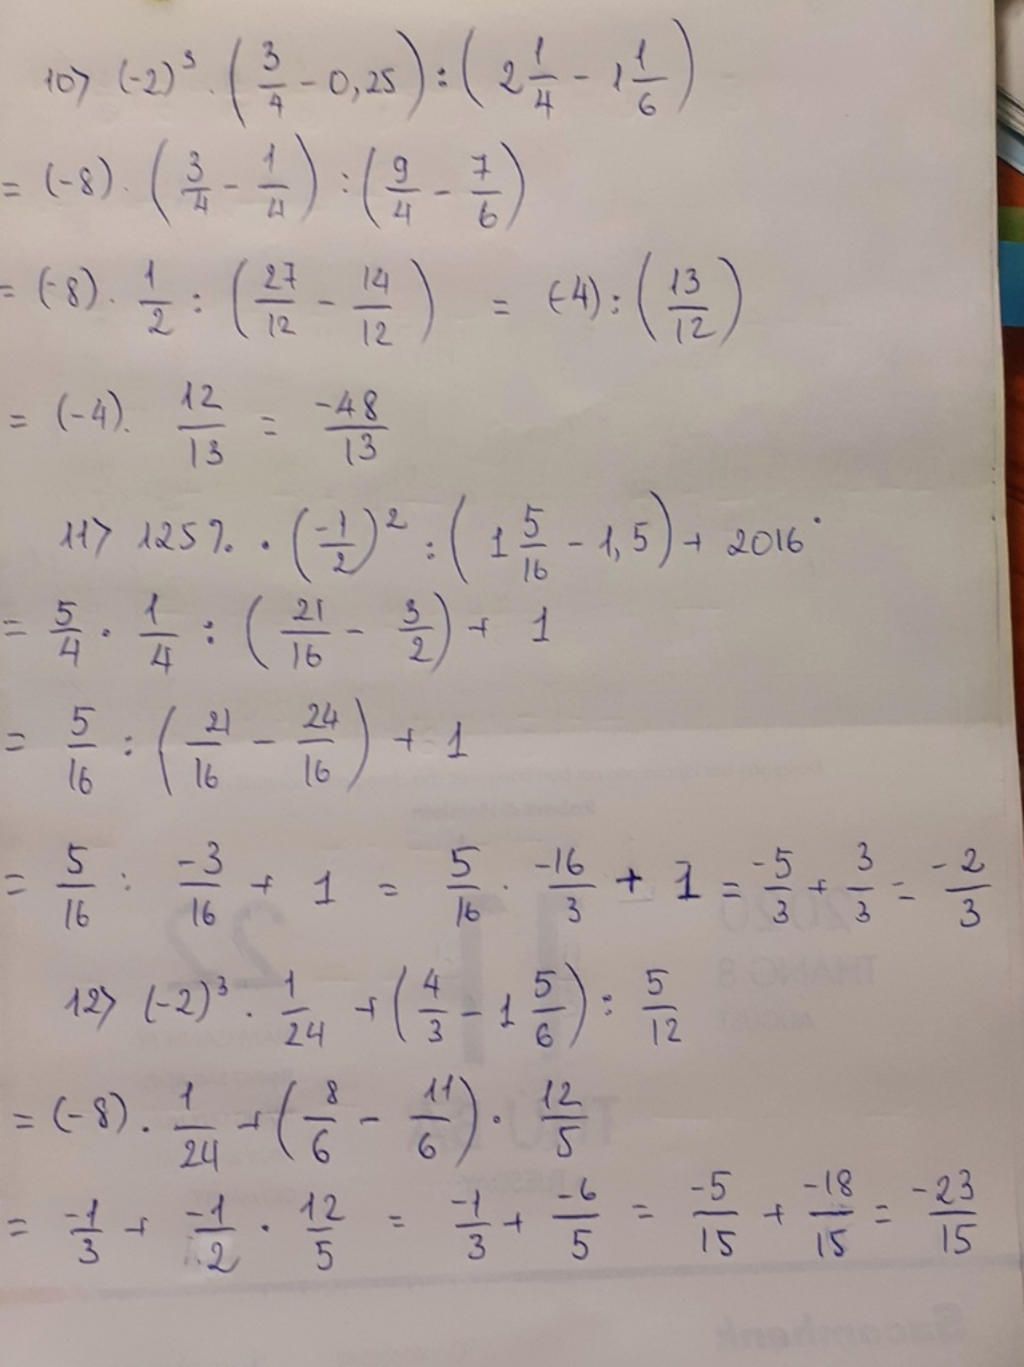 10> (-2)³ . (3/4 - 0,25) : (2 1/4 - 1 1/6)
= (-8) . (3/4 - 1/4) : (9/4 - 7/6)
= (-8) . 1/2 : (27/12 - 14/12) = (-4) : (13/12)
= (-4) . 12/13 = -48/13
11> 125% . (-1/2)² : (1 5/16 - 1,5) + 2016°
= 5/4 . 1/4 : (21/16 - 3/2) + 1
= 5/16 : (21/16 - 24/16) + 1
= 5/16 : -3/16 + 1 = 5/16 . -16/3 + 1 = -5/3 + 3/3 = -2/3
12> (-2)³ . 1/24 + (4/3 - 1 5/6) : 5/12
= (-8) . 1/24 + (8/6 - 11/6) . 12/5
= -1/3 + -1/2 . 12/5 = -1/3 + -6/5 = -5/15 + -18/15 = -23/15